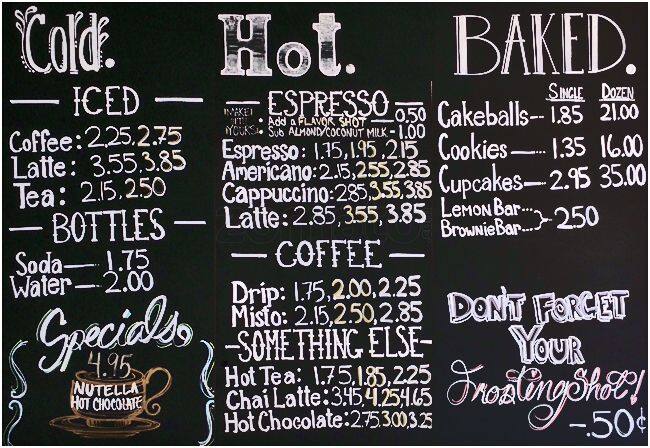 Cold.
ICED
Coffee: 2.25, 2.75
Latte: 3.55, 3.85
Tea: 2.15, 2.50
BOTTLES
Soda— 1.75
Water— 2.00
Specials.
4.95
NUTELLA
HOT CHOCOLATE
Hot.
ESPRESSO
MAKE IT YOURS:
Add a FLAVOR SHOT — 0.50
Sub ALMOND/COCONUT MILK - 1.00
Espresso: 1.75, 1.95, 2.15
Americano: 2.15, 2.55, 2.85
Cappuccino: 2.85, 3.55, 3.85
Latte: 2.85, 3.55, 3.85
COFFEE
Drip: 1.75, 2.00, 2.25
Misto: 2.15, 2.50, 2.85
-SOMETHING ELSE-
Hot Tea: 1.75, 1.85, 2.25
Chai Latte: 3.45, 4.25, 4.65
Hot Chocolate: 2.75, 3.00, 3.25
BAKED.
SINGLE DOZEN
Cakeballs-- 1.85 21.00
Cookies —— 1.35 16.00
Cupcakes—- 2.95 35.00
LEMON BAR...
BROWNIE BAR... 2.50
DON'T FORGET
YOUR
Frosting Shot!
-.50¢